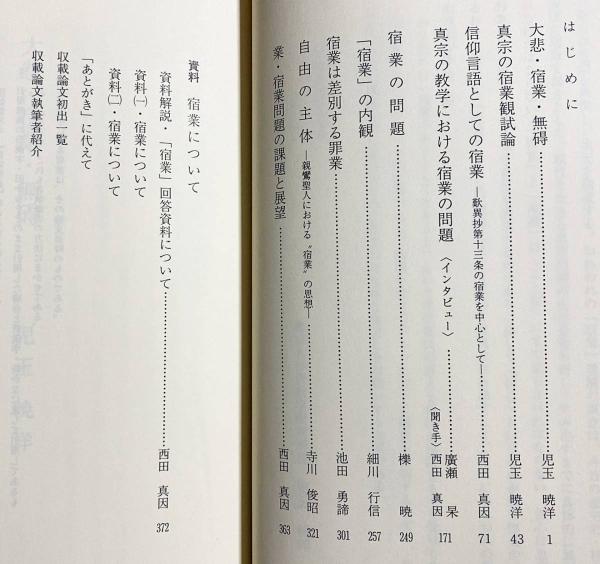 はじめに
大悲・宿業・無碍………児玉 暁洋 1
真宗の宿業観試論………児玉 暁洋 43
信仰言語としての宿業 ―歎異抄第十三条の宿業を中心として―………西田 真因 71
真宗の教学における宿業の問題〈インタビュー〉………廣瀬 杲 171
〈聞き手〉西田 真因
宿業の問題………櫟 暁 249
「宿業」の内観………細川 行信 257
宿業は差別する罪業………池田 勇諦 301
自由の主体 ―親鸞聖人における〝宿業〟の思想―………寺川 俊昭 321
業・宿業問題の課題と展望………西田 真因 363
資料 宿業について
資料解説・「宿業」回答資料について………西田 真因 372
資料㈠・宿業について
資料㈡・宿業について
「あとがき」に代えて
収載論文初出一覧
収載論文執筆者紹介